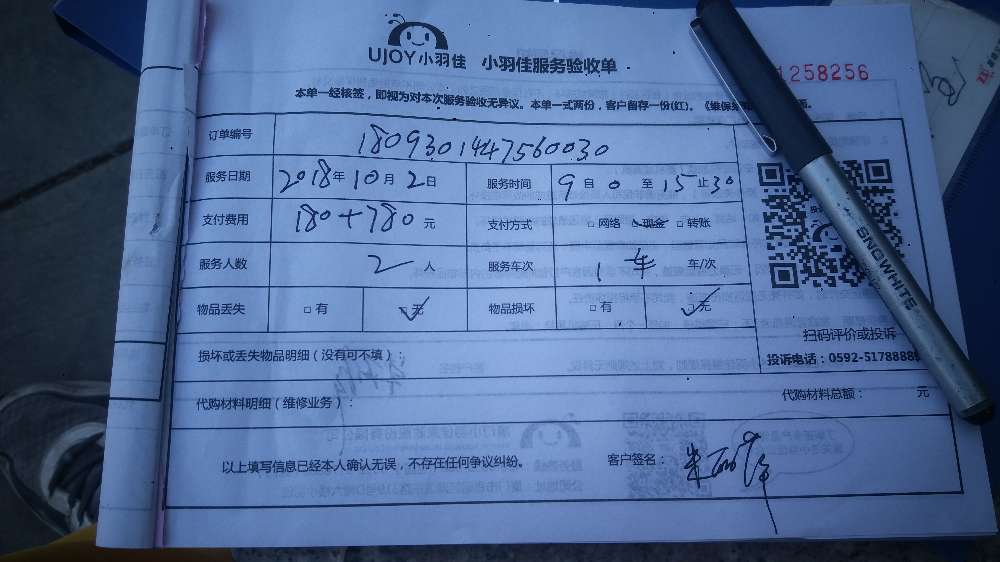 UJOY小羽佳 小羽佳服务验收单
1258256
本单一经核签，即视为对本次服务验收无异议。本单一式两份，客户留存一份(红)。《维保
订单编号 1809301447560030
服务日期 2018年10月2日 服务时间 9自0至15止30
支付费用 180+780元 支付方式 □网络 现金 □转账
服务人数 2人 服务车次 1车 车/次
物品丢失 □有 无 物品损坏 □有 无
扫码评价或投诉
损坏或丢失物品明细（没有可不填）：
投诉电话：0592-5178888
代购材料明细（维修业务）： 代购材料总额： 元
以上填写信息已经本人确认无误，不存在任何争议纠纷。 客户签名：
SNOWHITE